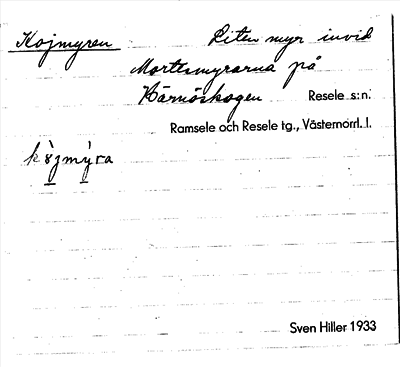 Kojmyren Liten myr invid
Mortlsmyrarna på
Härnöskogen Resele s:n.
Ramsele och Resele tg., Västernorrl. l.
Sven Hiller 1933